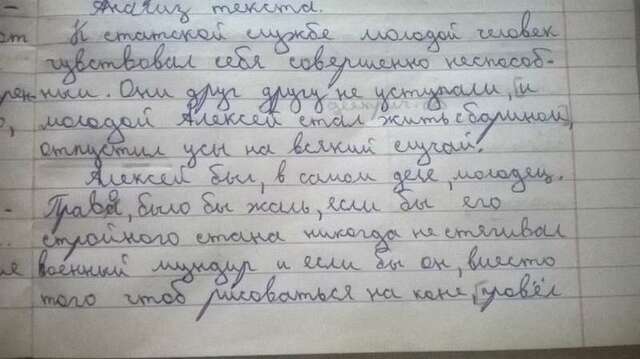 Анализ текста.
К статской службе молодой человек
чувствовал себя совершенно неспособ-
ным. Они друг другу не уступали, и
молодой Алексей стал жить барином,
отпустил усы на всякий случай.
Алексей был, в самом деле, молодец.
Право, было бы жаль, если бы его
стройного стана никогда не стягивал
военный мундир и если бы он, вместо
того чтоб рисоваться на коне, провёл